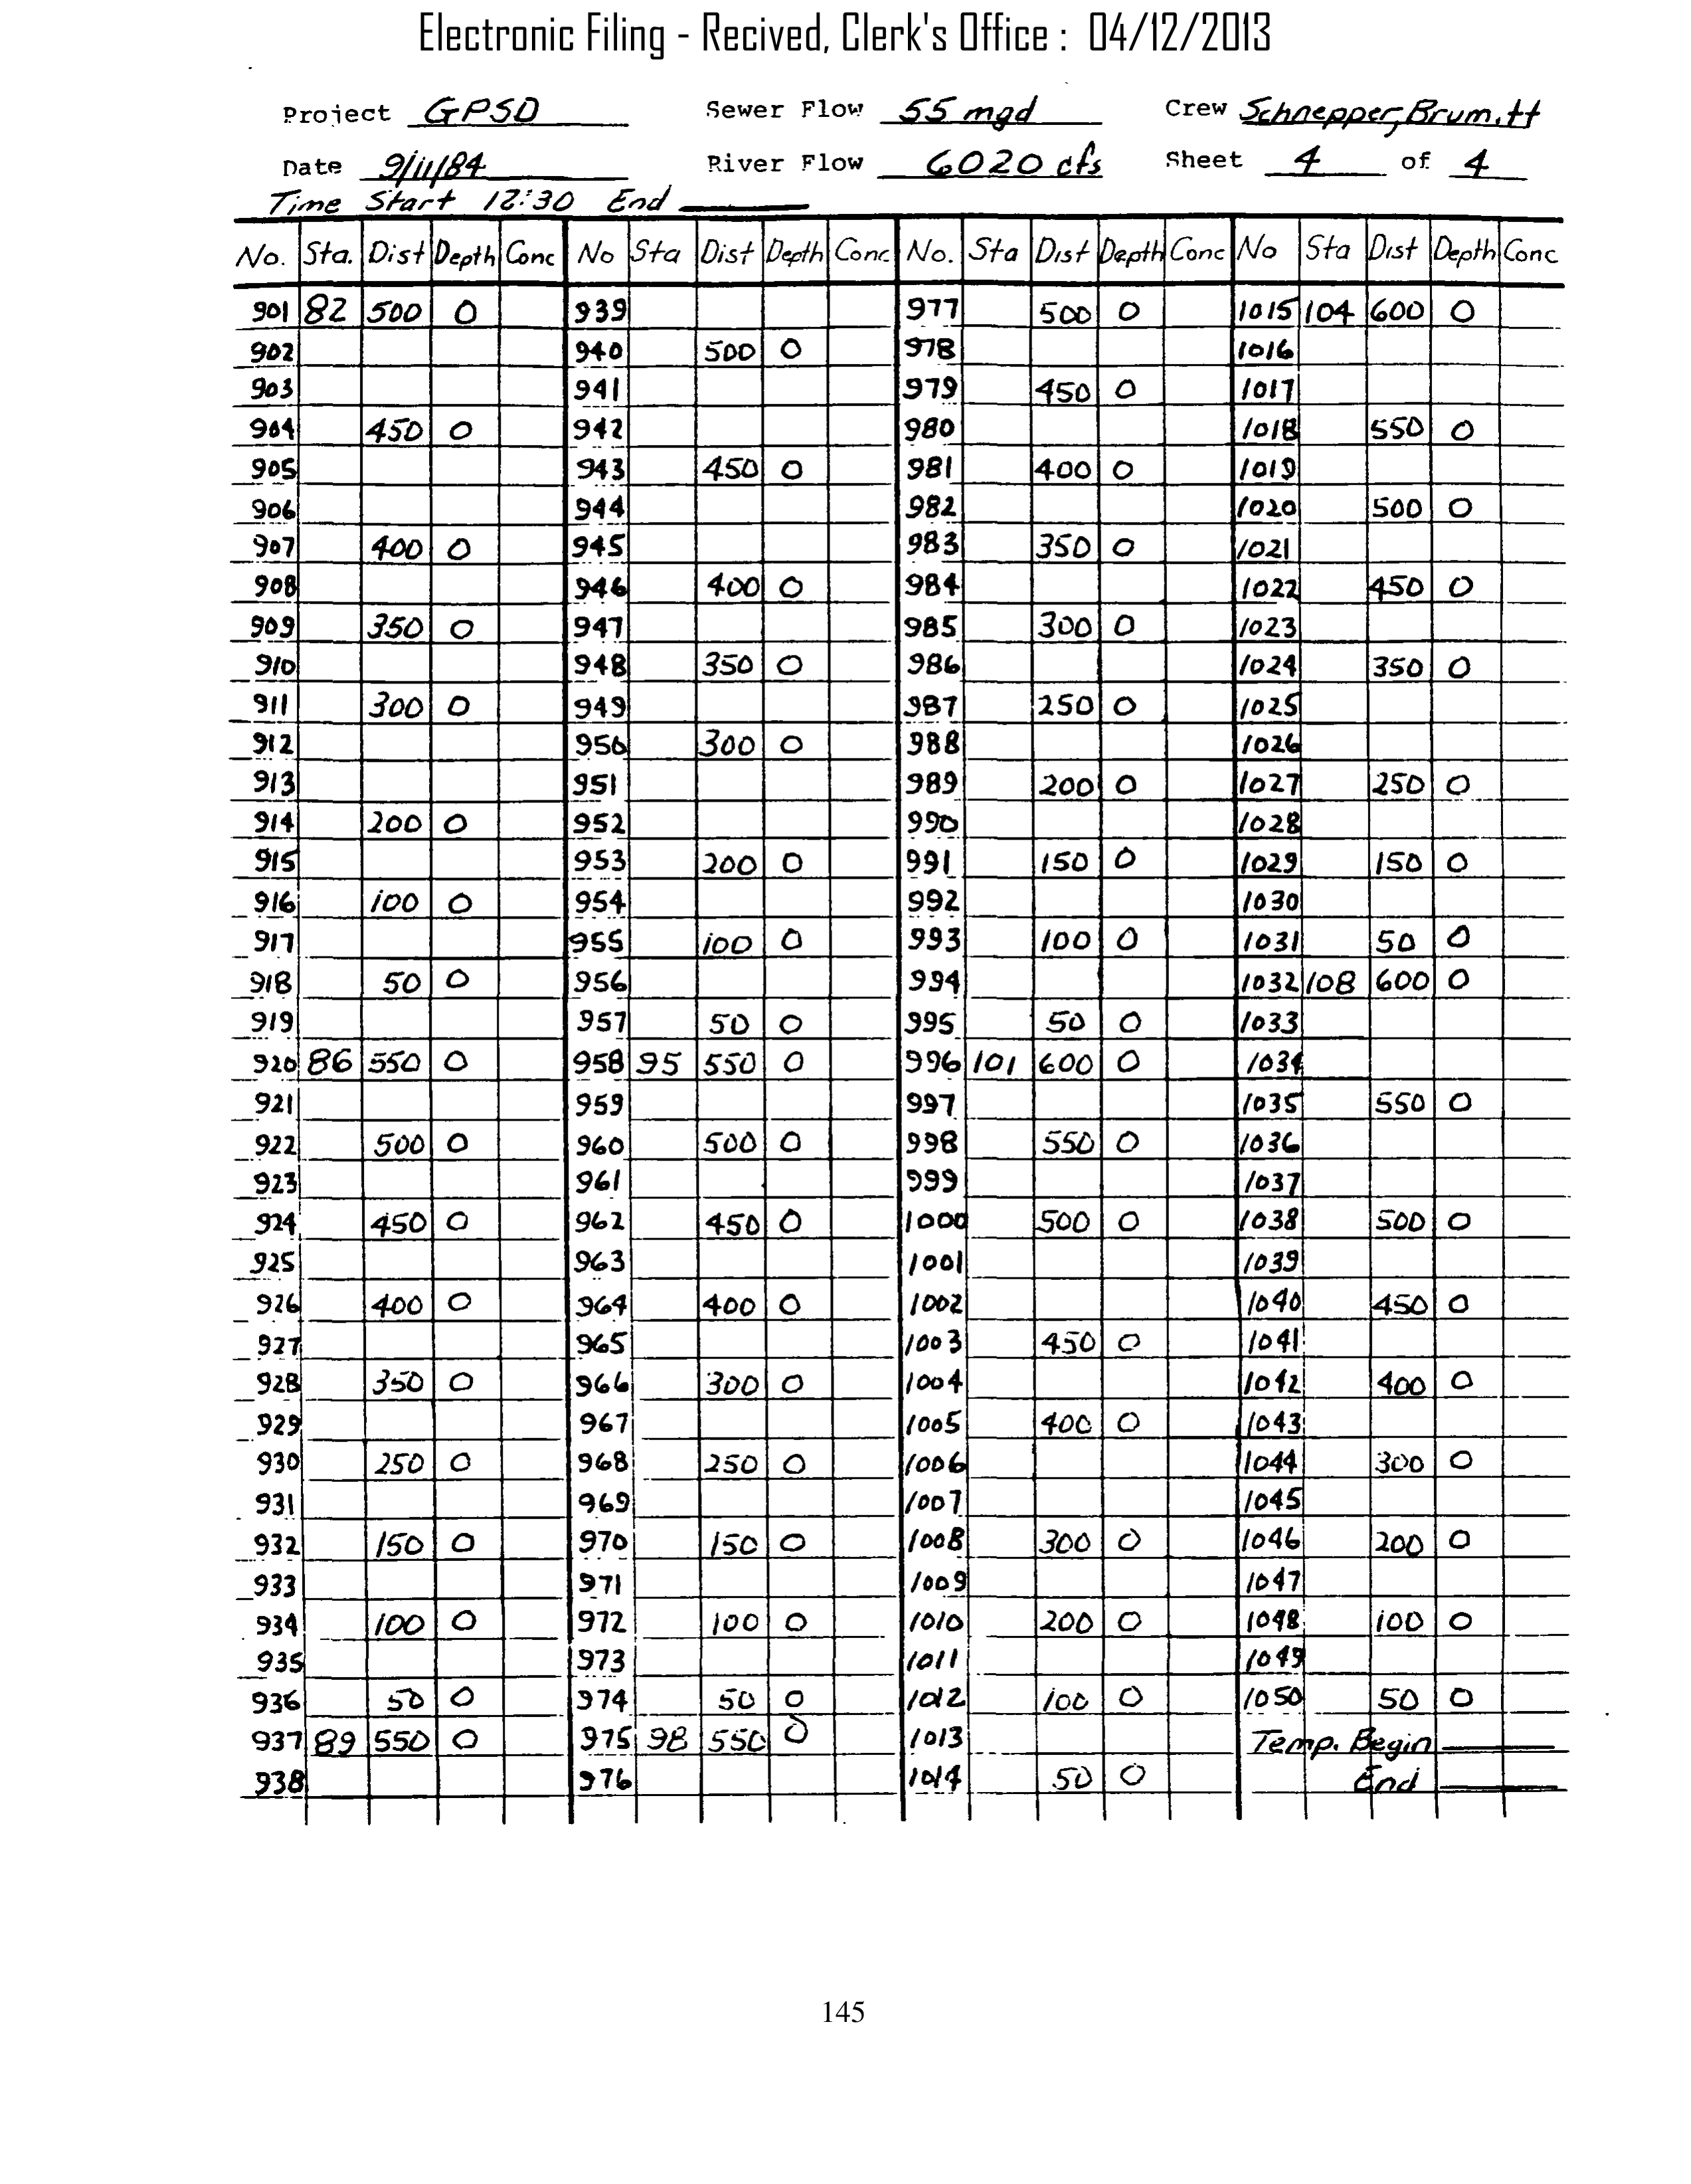 Electronic Filing - Recived, Clerk's Office : 04/12/2013
Project GPSD Sewer Flow 55 mgd Crew Schnepper, Brumitt
Date 9/11/84 River Flow 6020 cfs Sheet 4 of 4
Time Start 12:30 End
No. Sta. Dist Depth Conc No Sta Dist Depth Conc No. Sta Dist Depth Conc No Sta Dist Depth Conc
901 82 500 0 939 977 500 0 1015 104 600 0
902 940 500 0 978 1016
903 941 979 450 0 1017
904 450 0 942 980 1018 550 0
905 943 450 0 981 400 0 1019
906 944 982 1020 500 0
907 400 0 945 983 350 0 1021
908 946 400 0 984 1022 450 0
909 350 0 947 985 300 0 1023
910 948 350 0 986 1024 350 0
911 300 0 949 987 250 0 1025
912 950 300 0 988 1026
913 951 989 200 0 1027 250 0
914 200 0 952 990 1028
915 953 200 0 991 150 0 1029 150 0
916 100 0 954 992 1030
917 955 100 0 993 100 0 1031 50 0
918 50 0 956 994 1032 108 600 0
919 957 50 0 995 50 0 1033
920 86 550 0 958 95 550 0 996 101 600 0 1034
921 959 997 1035 550 0
922 500 0 960 500 0 998 550 0 1036
923 961 999 1037
924 450 0 962 450 0 1000 500 0 1038 500 0
925 963 1001 1039
926 400 0 964 400 0 1002 1040 450 0
927 965 1003 450 0 1041
928 350 0 966 300 0 1004 1042 400 0
929 967 1005 400 0 1043
930 250 0 968 250 0 1006 1044 300 0
931 969 1007 1045
932 150 0 970 150 0 1008 300 0 1046 200 0
933 971 1009 1047
934 100 0 972 100 0 1010 200 0 1048 100 0
935 973 1011 1049
936 50 0 974 50 0 1012 100 0 1050 50 0
937 89 550 0 975 98 550 0 1013 Temp. Begin
938 976 1014 50 0 End
145